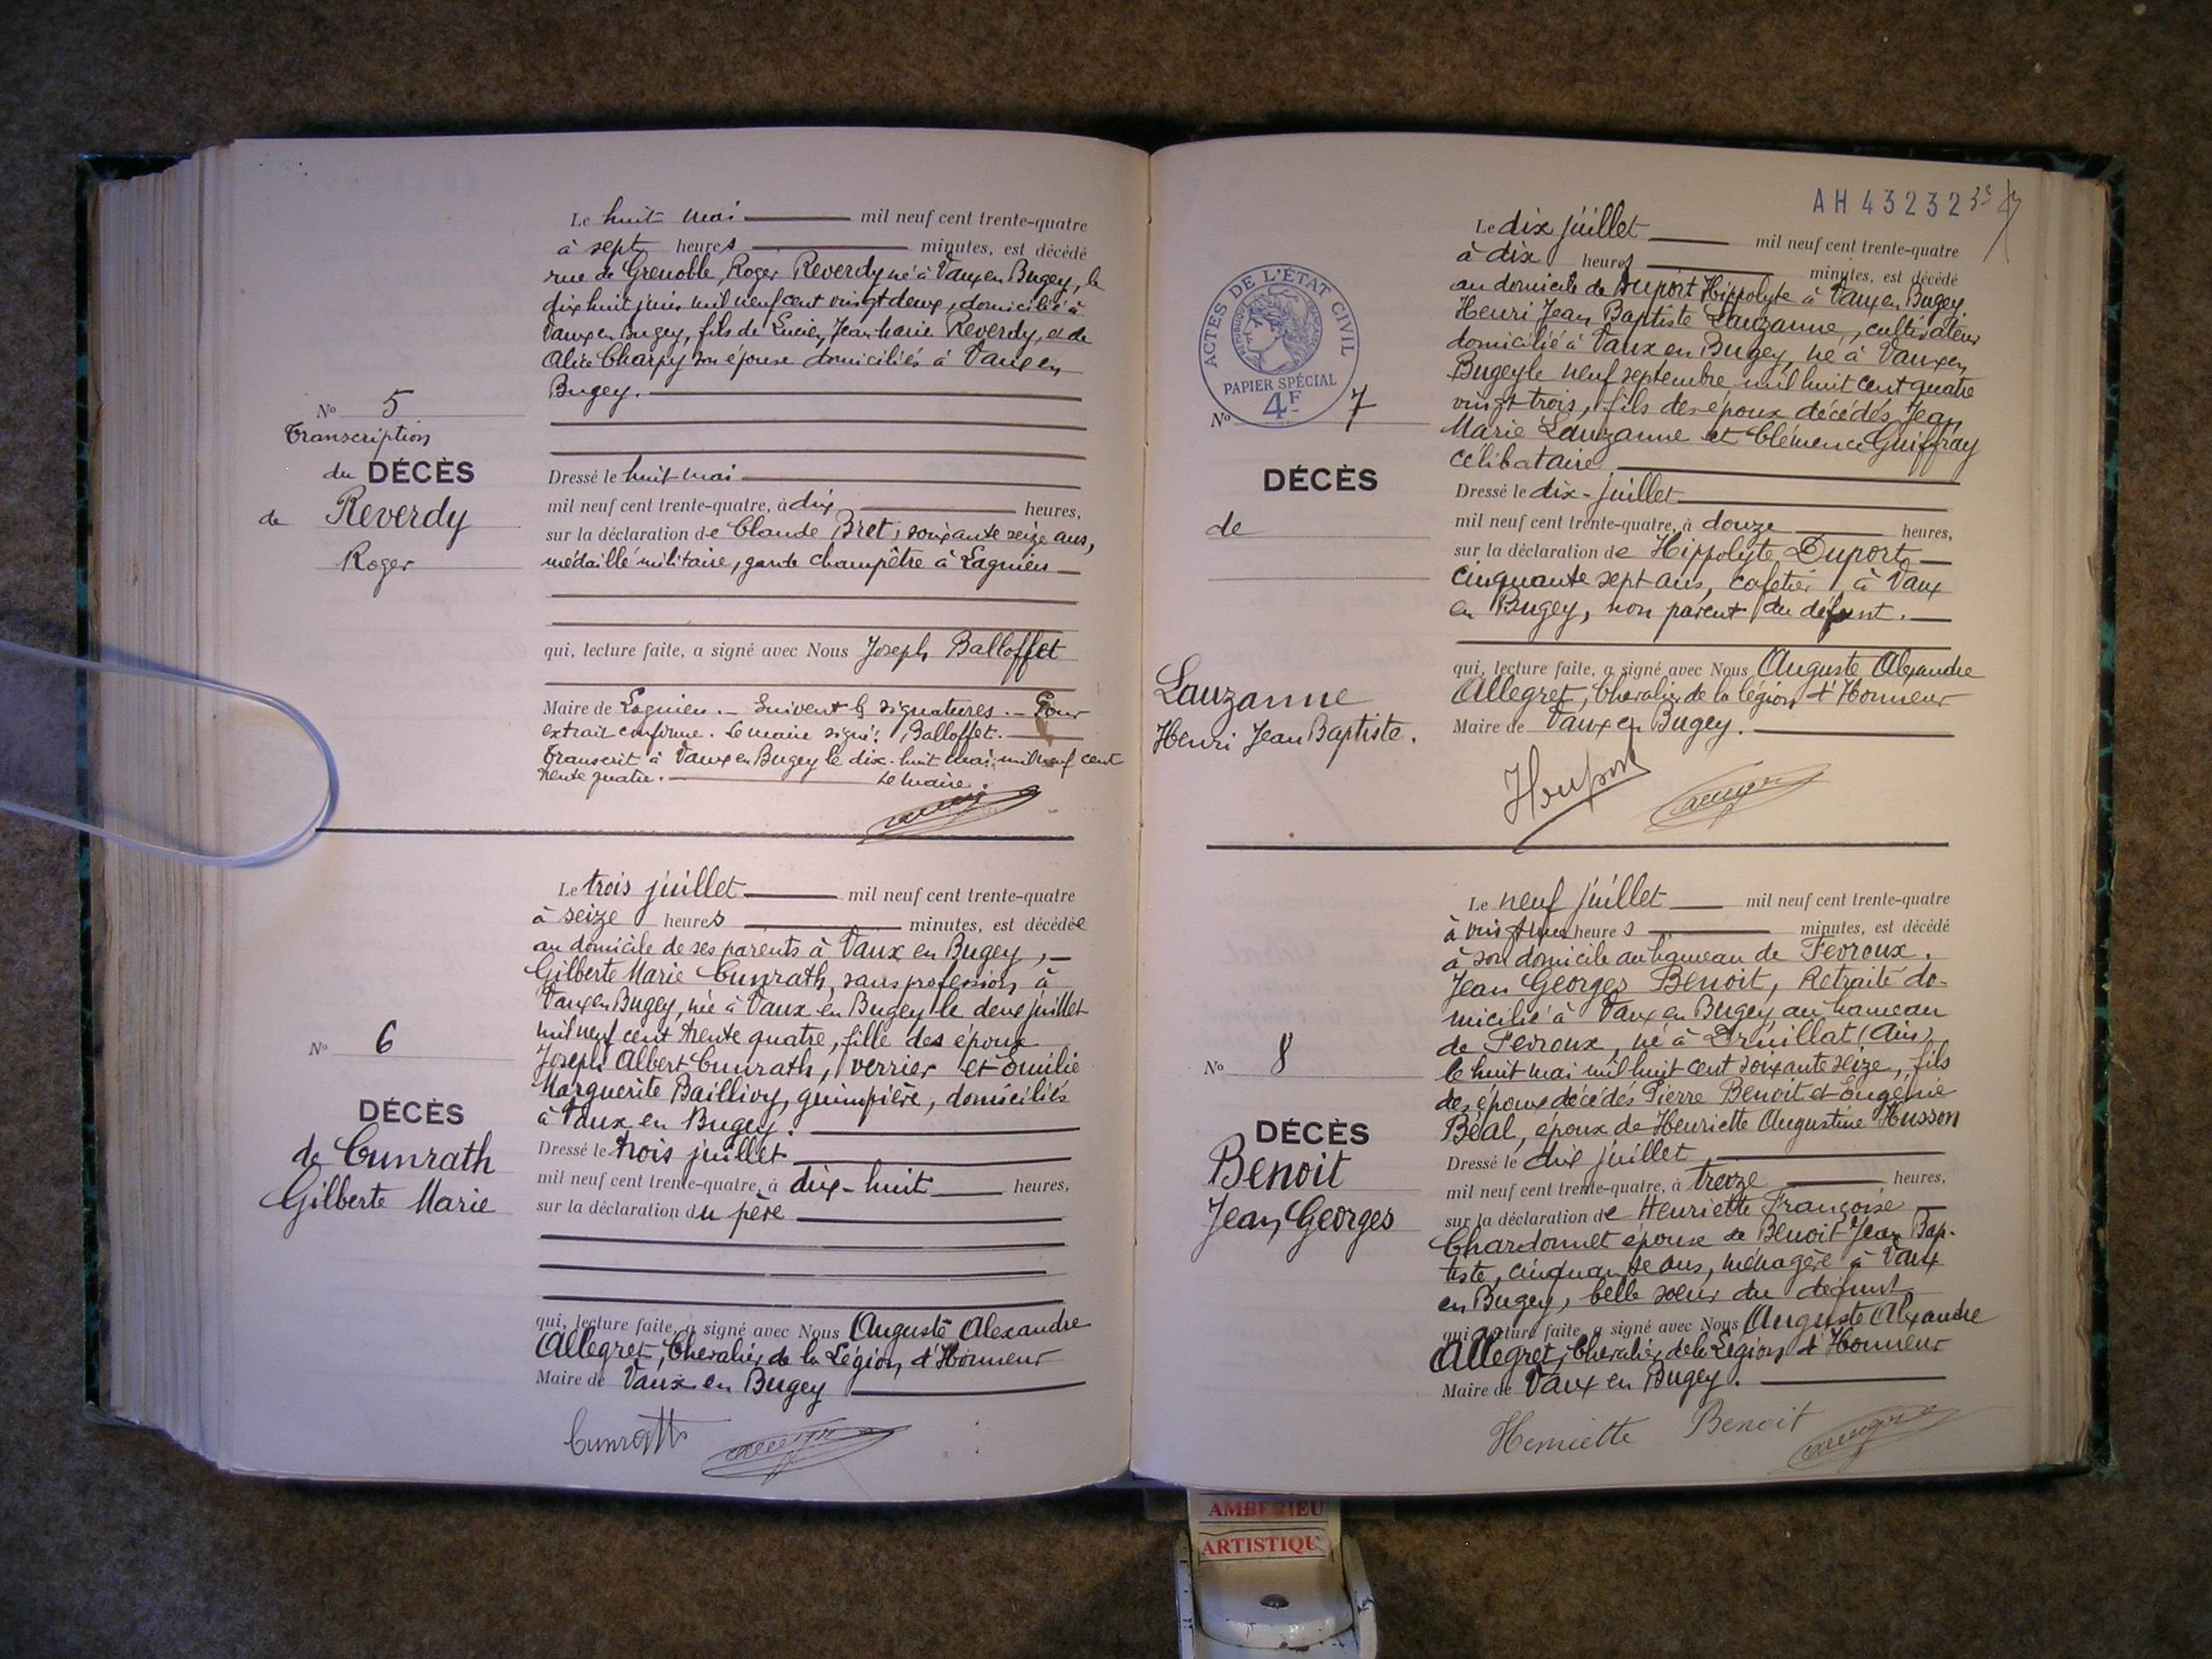 Le huit mai mil neuf cent trente-quatre
à sept heures minutes, est décédé
rue de Grenoble, Roger Reverdy né à Vaux en Bugey, le
dix huit juin mil neuf cent vingt deux, domicilié à
Vaux en Bugey, fils de Lucien Jean Marie Reverdy, et de
Alice Charpy son épouse domiciliés à Vaux en
Bugey.
N° 5
Transcription
du DÉCÈS
de Reverdy
Roger
Dressé le huit mai
mil neuf cent trente-quatre, à dix heures,
sur la déclaration de Claude Bret, soixante seize ans,
médaillé militaire, garde champêtre à Lagnieu
qui, lecture faite, a signé avec Nous Joseph Balloffet
Maire de Lagnieu. Suivent les signatures. Pour
extrait conforme. Le maire signé: Balloffet.
Transcrit à Vaux en Bugey le dix-huit mai mil neuf cent
trente quatre. Le Maire.
Le trois juillet mil neuf cent trente-quatre
à seize heures minutes, est décédée
au domicile de ses parents à Vaux en Bugey,
Gilberte Marie Cunrath, sans profession à
Vaux en Bugey, née à Vaux en Bugey le deux juillet
mil neuf cent trente quatre, fille des époux
Joseph Albert Cunrath, verrier et Emilie
Marguerite Baillivy, guimpière, domiciliés
à Vaux en Bugey.
N° 6
DÉCÈS
de Cunrath
Gilberte Marie
Dressé le trois juillet
mil neuf cent trente-quatre, à dix-huit heures,
sur la déclaration du père
qui, lecture faite, a signé avec Nous Auguste Alexandre
Allegret, Chevalier de la Légion d'Honneur
Maire de Vaux en Bugey
Cunrath
AH 43232
Le dix juillet mil neuf cent trente-quatre
à dix heures minutes, est décédé
au domicile de Duport Hippolyte à Vaux en Bugey
Henri Jean Baptiste Lauzanne, cultivateur
domicilié à Vaux en Bugey, né à Vaux en
Bugey le neuf septembre mil huit cent quatre
vingt-trois, fils des époux décédés Jean
Marie Lauzanne et Clémence Guiffray
célibataire
ACTES DE L'ÉTAT CIVIL
PAPIER SPÉCIAL
4F
N° 7
DÉCÈS
de
Lauzanne
Henri Jean Baptiste.
Dressé le dix-juillet
mil neuf cent trente-quatre, à douze heures,
sur la déclaration de Hippolyte Duport
cinquante sept ans, cafetier à Vaux
en Bugey, non parent du défunt.
qui, lecture faite, a signé avec Nous Auguste Alexandre
Allegret, Chevalier de la légion d'Honneur
Maire de Vaux en Bugey.
HDuport
Le neuf juillet mil neuf cent trente-quatre
à vingt une heures minutes, est décédé
à son domicile au hameau de Fevroux.
Jean Georges Benoit, Retraité do-
micilié à Vaux en Bugey au hameau
de Fevroux, né à Druillat (Ain)
le huit mai mil huit cent soixante seize, fils
des époux décédés Pierre Benoit et Eugénie
Béal, époux de Henriette Augustine Husson
N° 8
DÉCÈS
Benoit
Jean Georges
Dressé le dix juillet
mil neuf cent trente-quatre, à treize heures,
sur la déclaration de Henriette Françoise
Chardonnet épouse de Benoit Jean Bap-
tiste, cinquante ans, ménagère à Vaux
en Bugey, belle soeur du défunt
qui, lecture faite, a signé avec Nous Auguste Alexandre
Allegret, Chevalier de la Légion d'Honneur
Maire de Vaux en Bugey.
Henriette Benoit
AMBERIEU
ARTISTIQU